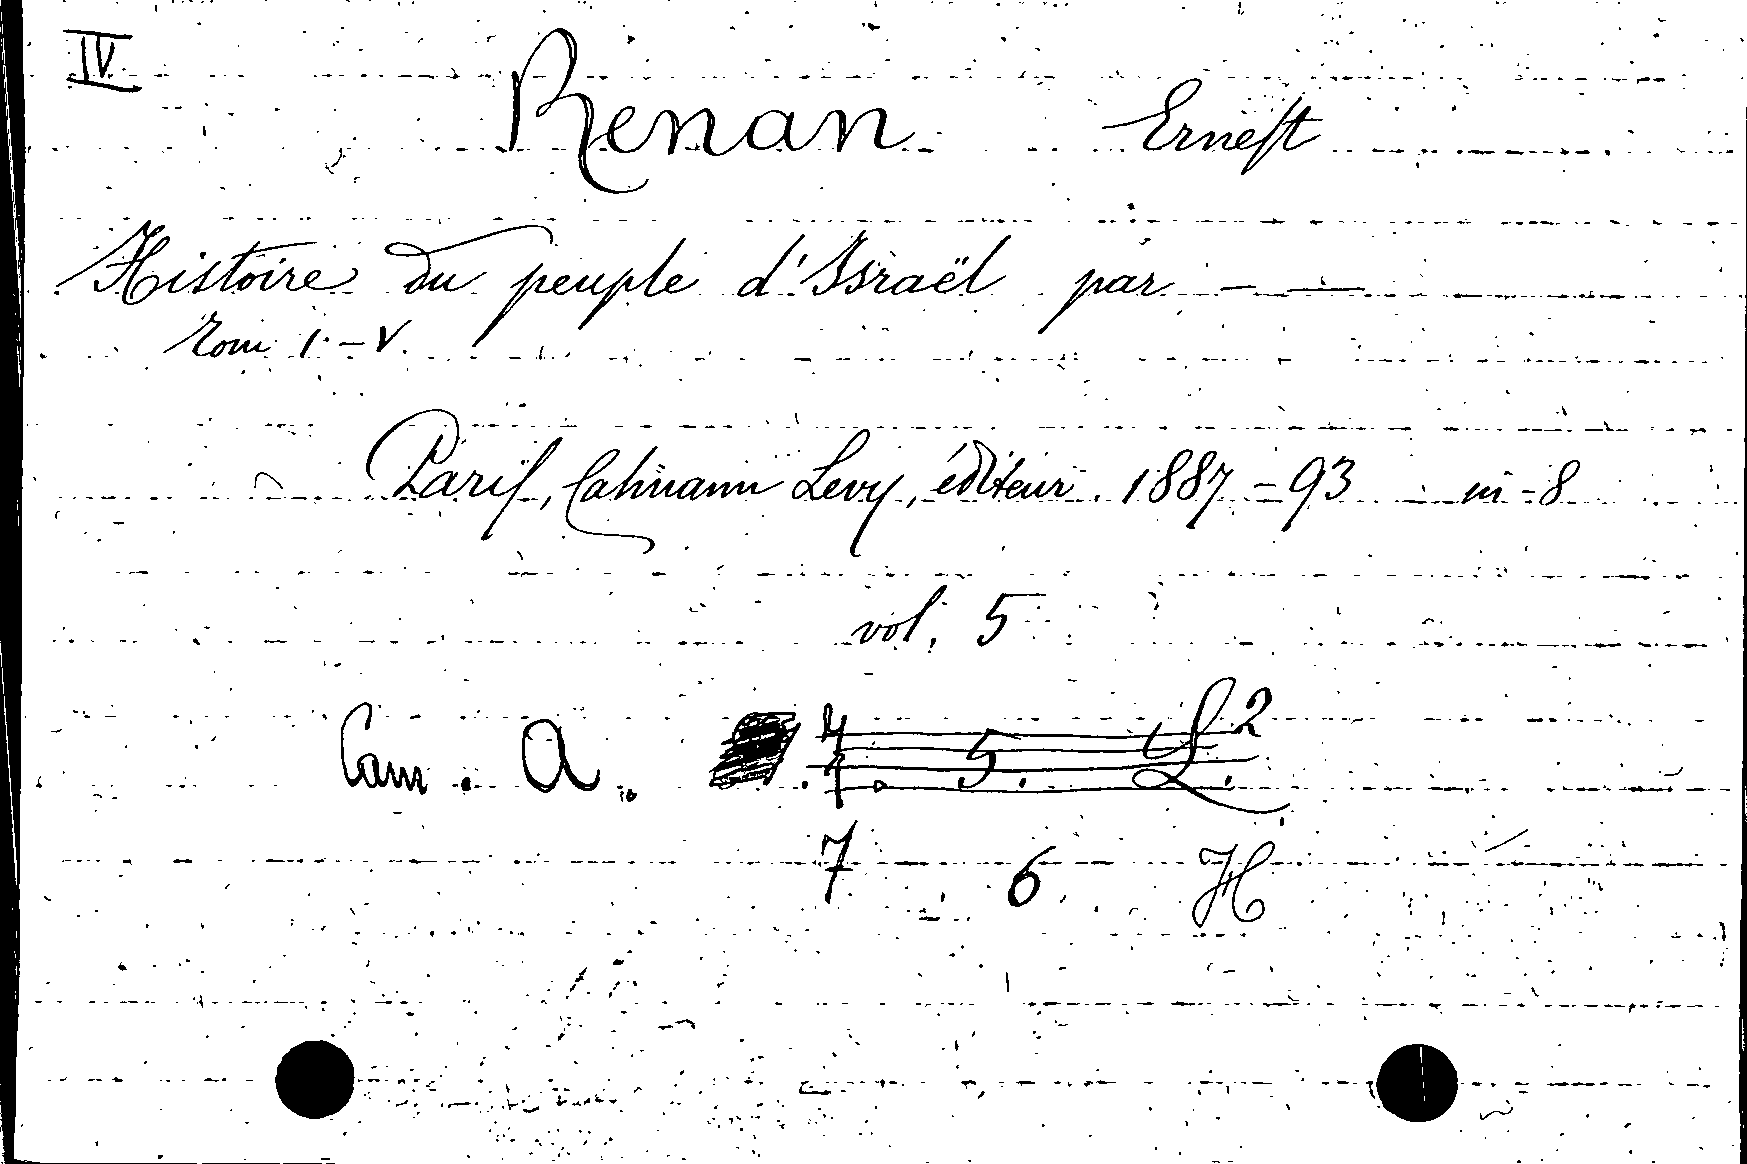 IV
Renan Ernest
Histoire du peuple d'Israël par — —
Tom I. – V.
Paris, Calmann Levy, éditeur. 1887 – 93 in - 8
vol. 5
Cam. A. 5. L.2
7 6 H